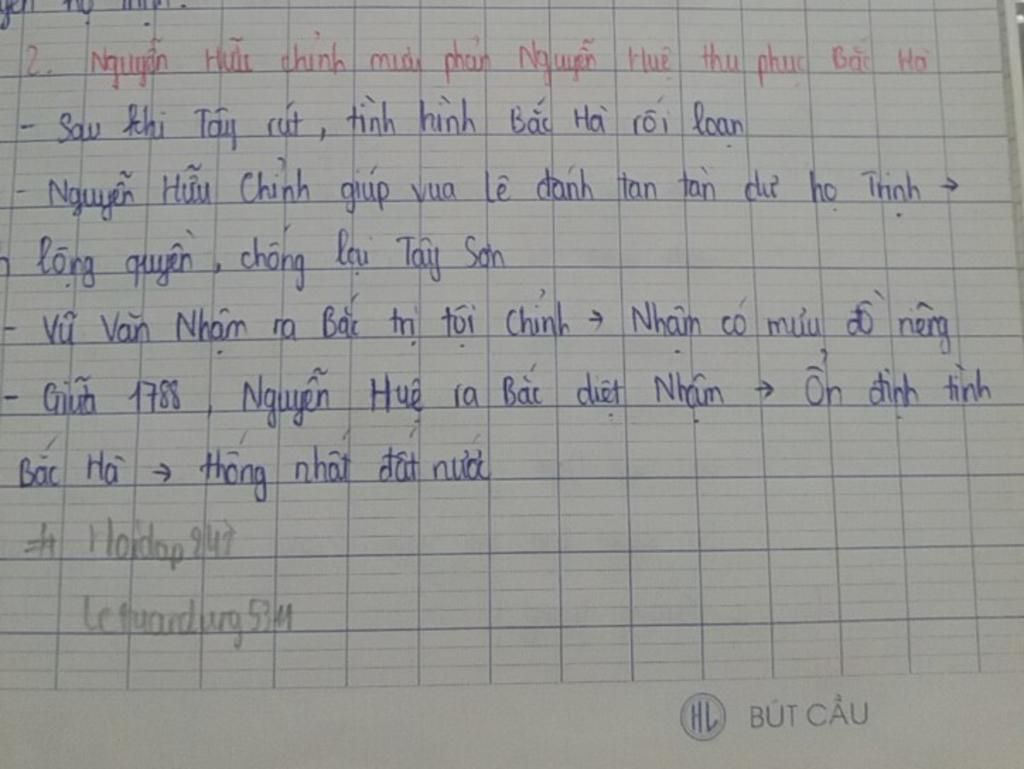 2. Nguyễn Hữu Chỉnh mưu phản Nguyễn Huệ thu phục Bắc Hà
- Sau khi Tây rút, tình hình Bắc Hà rối loạn
- Nguyễn Hữu Chỉnh giúp vua Lê đánh tan tàn dư họ Trịnh →
lộng quyền, chống lại Tây Sơn
- Vũ Văn Nhậm ra Bắc trị tội Chỉnh → Nhậm có mưu đồ riêng
- Giữa 1788, Nguyễn Huệ ra Bắc diệt Nhậm → Ổn định tình
Bắc Hà → thống nhất đất nước
Hoidap247
letuandung5311
HL BÚT CẦU